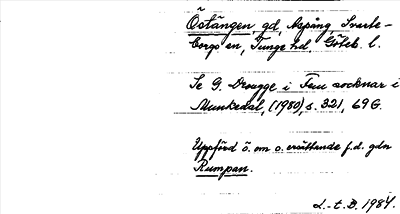 Östängen gd, Aspång, Svarte-
borgs sn, Tunge hd, Göteb. l.
Se G. Drougge i Fem socknar i
Munkedal, (1980), s. 321, 69 G.
Uppförd ö. om o. ersättande f.d. gdn
Rumpan.
L.-t. B. 1984.